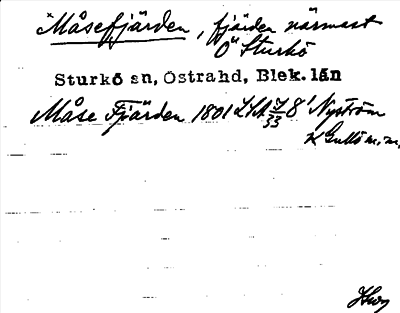 ˣMåsefjärden, fjärden närmast
O" Sturkö
Sturkö sn, Östrahd, Blek. län
Måse Fjärden 1801 LSA 8' Nyström
K Gullö m.m.